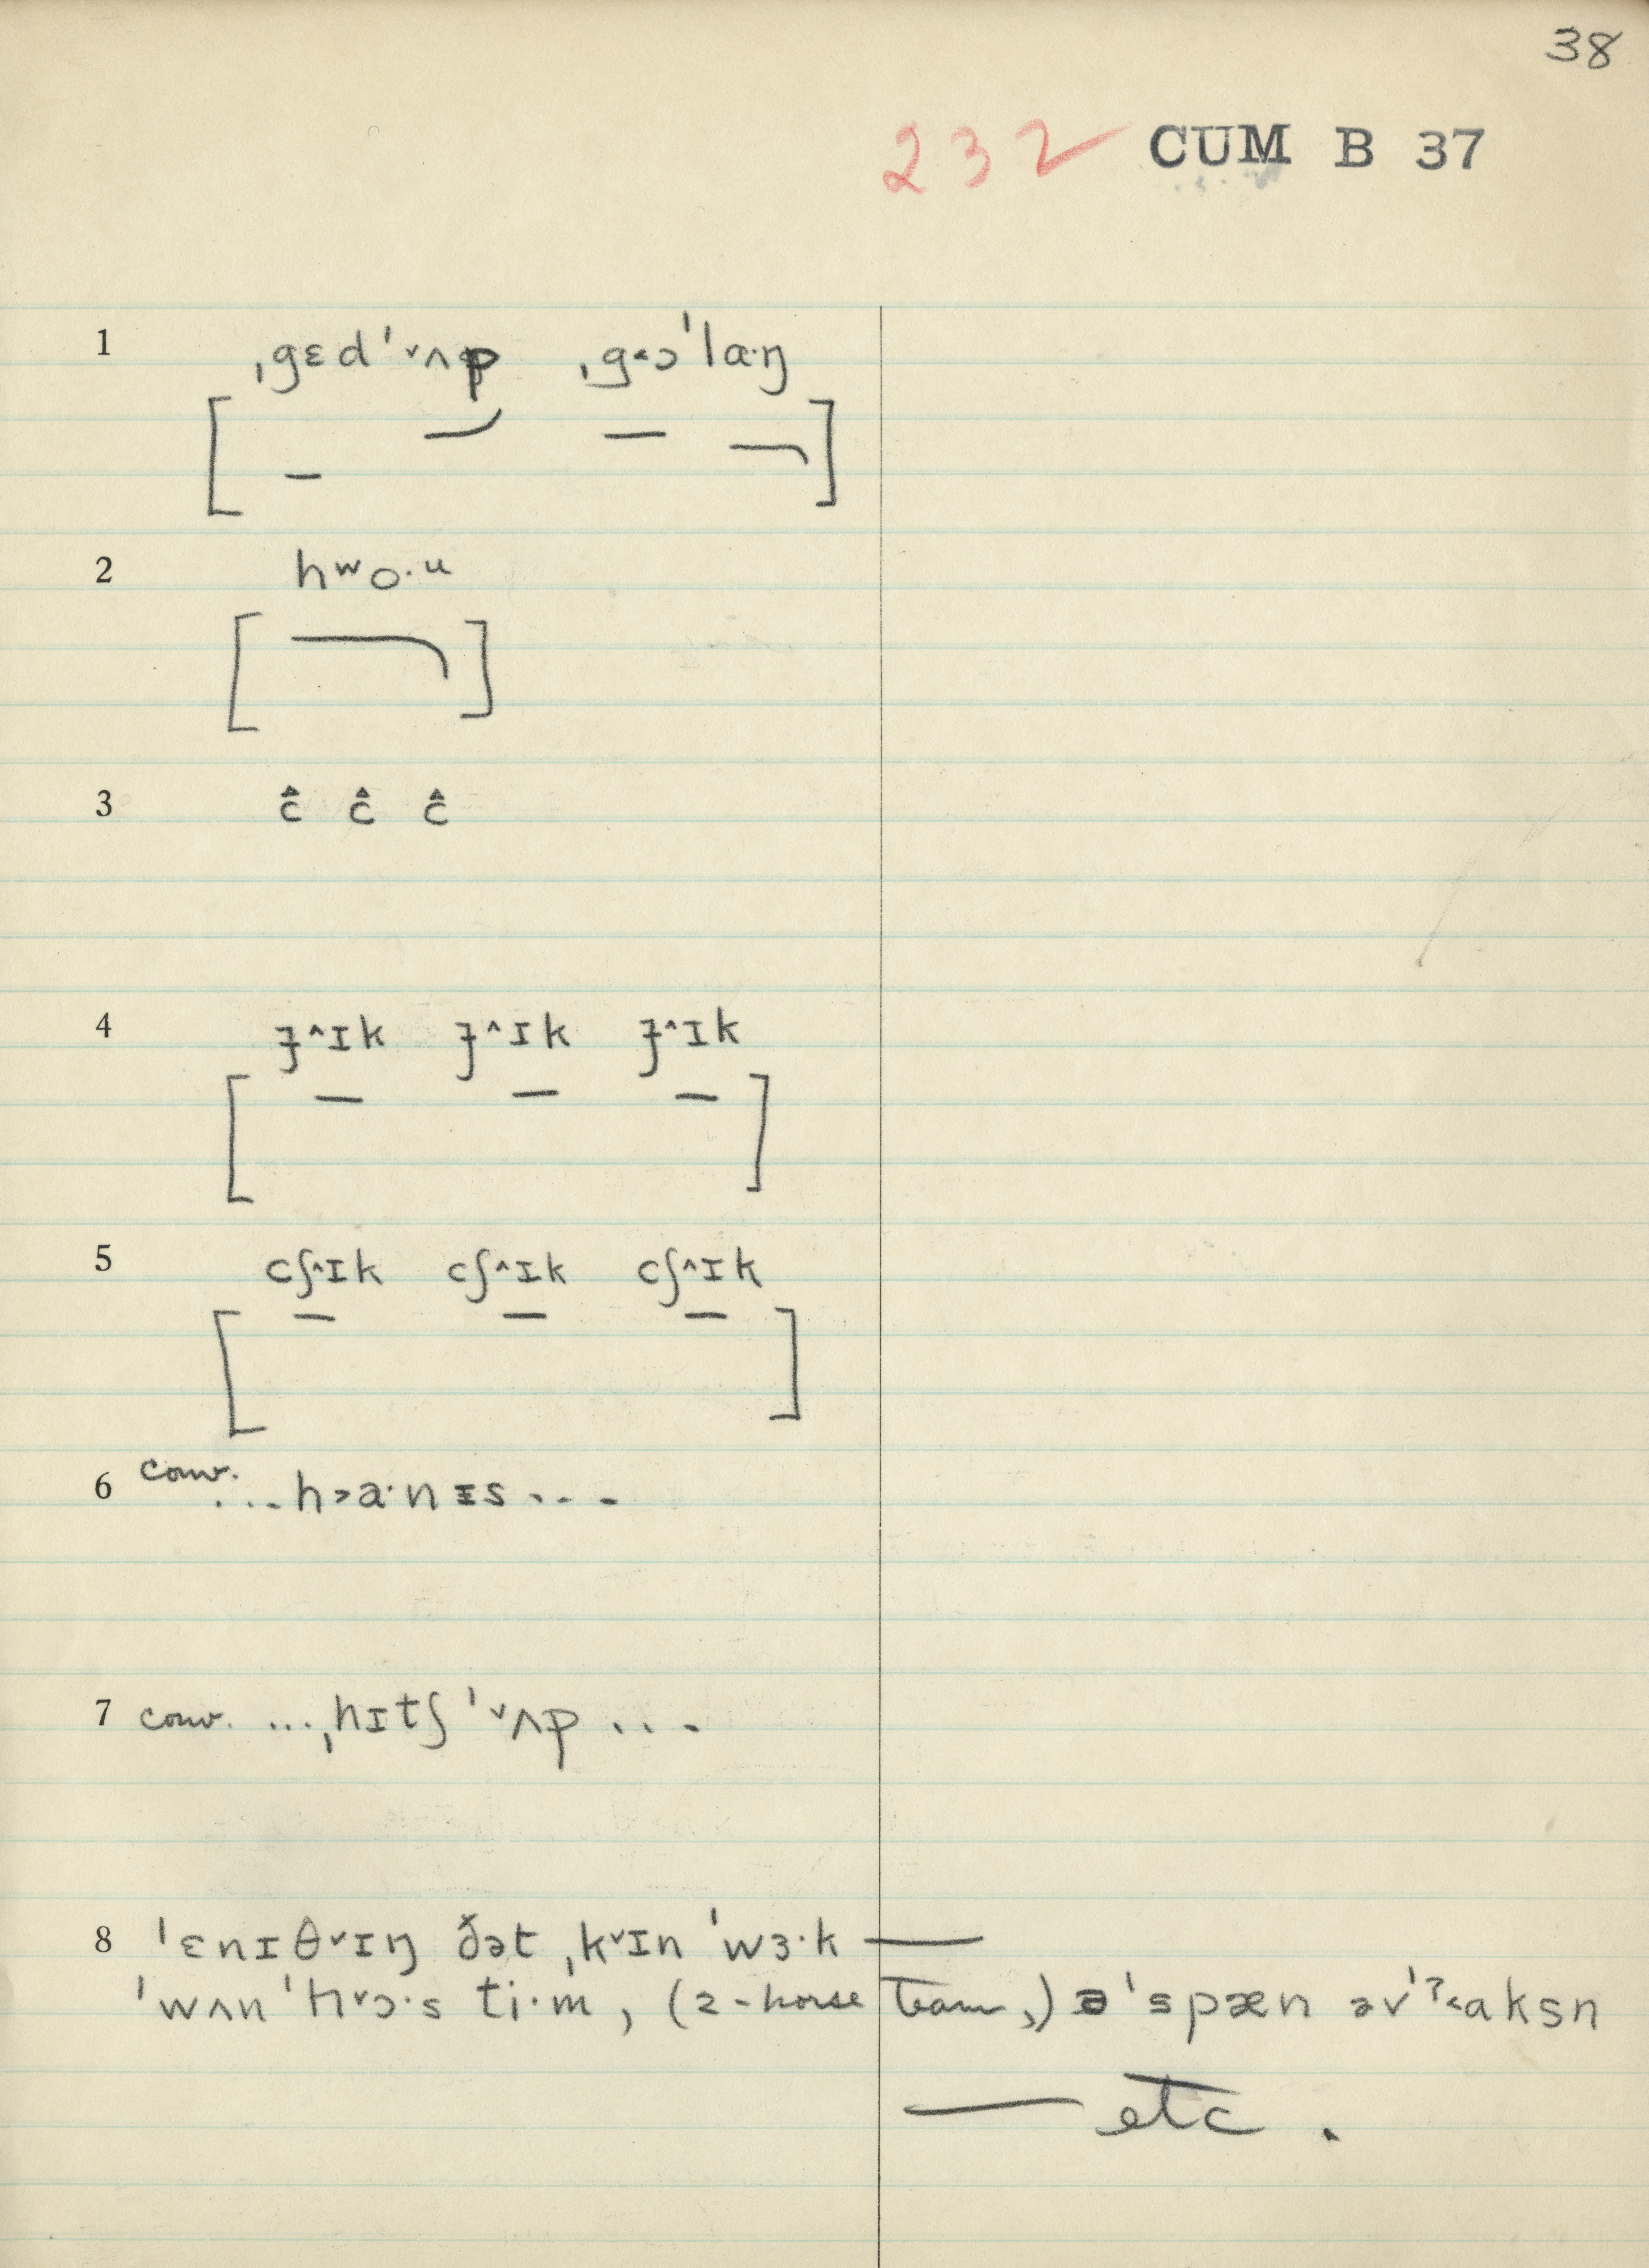 38
232 CUM B 37
1 ˌgɛd'˅ʌp ˌg˂ɔ'lɑ·ŋ
2 hʷo·ᵘ
3 ĉ ĉ ĉ
4 ɟ^ɪk ɟ^ɪk ɟ^ɪk
5 cʃ^ɪk cʃ^ɪk cʃ^ɪk
6 conv. ...h˃a·nɪs...
7 conv. ...ˌhɪtʃ'˅ʌp...
8 'ɛnɪθ˅ɪŋ ðət ˌk˅ɪn 'wɜ·k —
'wʌn 'h˅ɔ·s ti·m, (2-horse team,) ə'spæn əv'ˀ˂aksn
— etc.